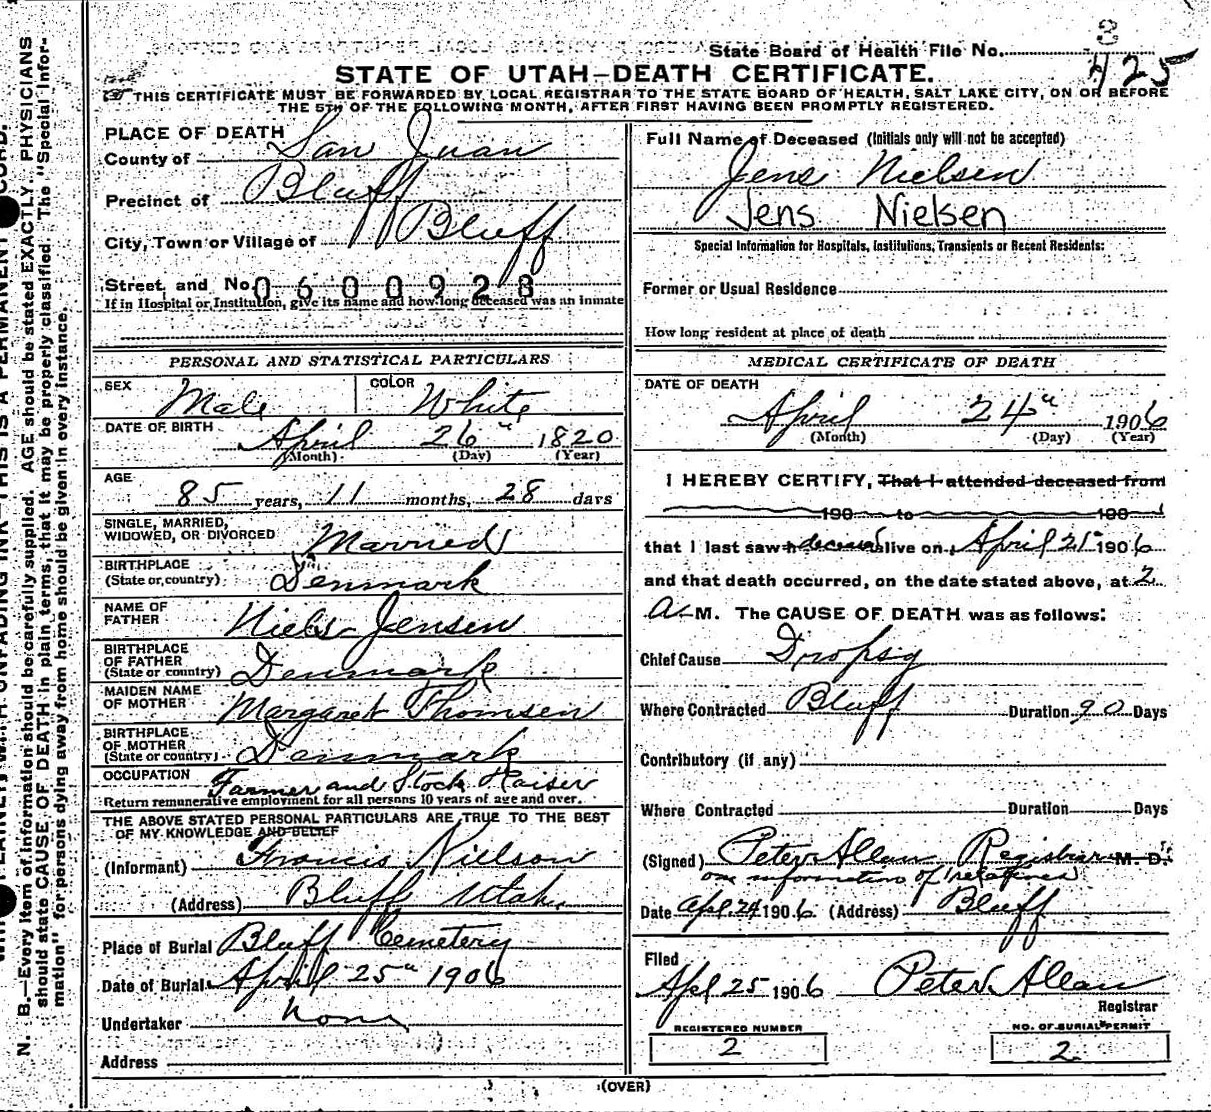 State Board of Health File No. 3
425
STATE OF UTAH—DEATH CERTIFICATE.
THIS CERTIFICATE MUST BE FORWARDED BY LOCAL REGISTRAR TO THE STATE BOARD OF HEALTH, SALT LAKE CITY, ON OR BEFORE
THE 5TH OF THE FOLLOWING MONTH, AFTER FIRST HAVING BEEN PROMPTLY REGISTERED.
PLACE OF DEATH
County of San Juan
Precinct of Bluff
City, Town or Village of Bluff
Street and No. 0600928
If in Hospital or Institution, give its name and how long deceased was an inmate
PERSONAL AND STATISTICAL PARTICULARS
SEX Male COLOR White
DATE OF BIRTH April 26" 1820
(Month) (Day) (Year)
AGE
85 years, 11 months, 28 days
SINGLE, MARRIED,
WIDOWED, OR DIVORCED Married
BIRTHPLACE
(State or country) Denmark
NAME OF
FATHER Niels Jensen
BIRTHPLACE
OF FATHER
(State or country) Denmark
MAIDEN NAME
OF MOTHER Margaret Thomsen
BIRTHPLACE
OF MOTHER
(State or country) Denmark
OCCUPATION Farmer and Stock Raiser
Return remunerative employment for all persons 10 years of age and over.
THE ABOVE STATED PERSONAL PARTICULARS ARE TRUE TO THE BEST
OF MY KNOWLEDGE AND BELIEF
(Informant) Francis Nielson
(Address) Bluff Utah.
Place of Burial Bluff Cemetery
Date of Burial April 25" 1906
Undertaker none
Address
Full Name of Deceased (Initials only will not be accepted)
Jens Nielsen
Jens Nielsen
Special Information for Hospitals, Institutions, Transients or Recent Residents:
Former or Usual Residence
How long resident at place of death
MEDICAL CERTIFICATE OF DEATH
DATE OF DEATH
April 24" 1906
(Month) (Day) (Year)
I HEREBY CERTIFY, That I attended deceased from
190 to 190
that I last saw h deceased alive on April 21" 1906
and that death occurred, on the date stated above, at 2
A M. The CAUSE OF DEATH was as follows:
Chief Cause Dropsy
Where Contracted Bluff Duration 90 Days
Contributory (if any)
Where Contracted Duration Days
(Signed) Peter Allan Registrar M. D.
on information of relatives
Date Apl 24 1906 (Address) Bluff
Filed
Apl 25 1906 Peter Allan
Registrar
REGISTERED NUMBER
2
NO. OF BURIAL PERMIT
2
(OVER)
N. B.—Every item of information should be carefully supplied. AGE should be stated EXACTLY. PHYSICIANS
should state CAUSE OF DEATH in plain terms, that it may be properly classified. The "Special Infor-
mation" for persons dying away from home should be given in every instance.